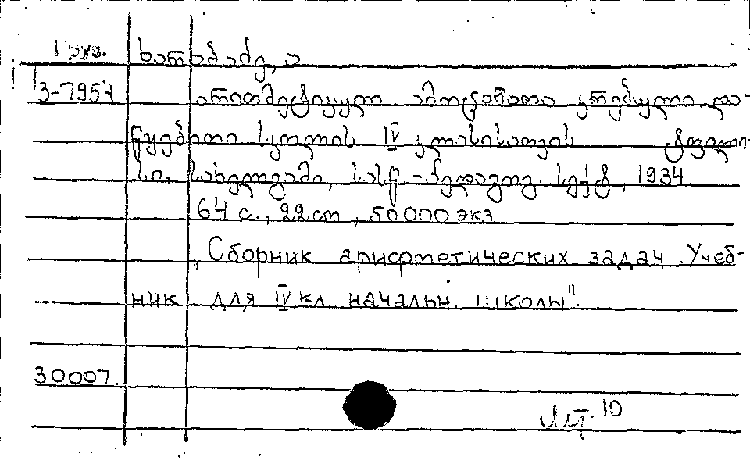 1 экз. ხარაბაძე, ა
3-7954 არითმეტიკულ ამოცანათა კრებული და-
წყებითი სკოლის IV კლასისათვის ტფილი-
სი, სახელგამი, სასწ.-პედაგოგ. სექტ, 1934
64 с., 22 cm, 50000 экз
„Сборник арифметических задач. Учеб-
ник для IV кл. начальн. школы".
30007
10